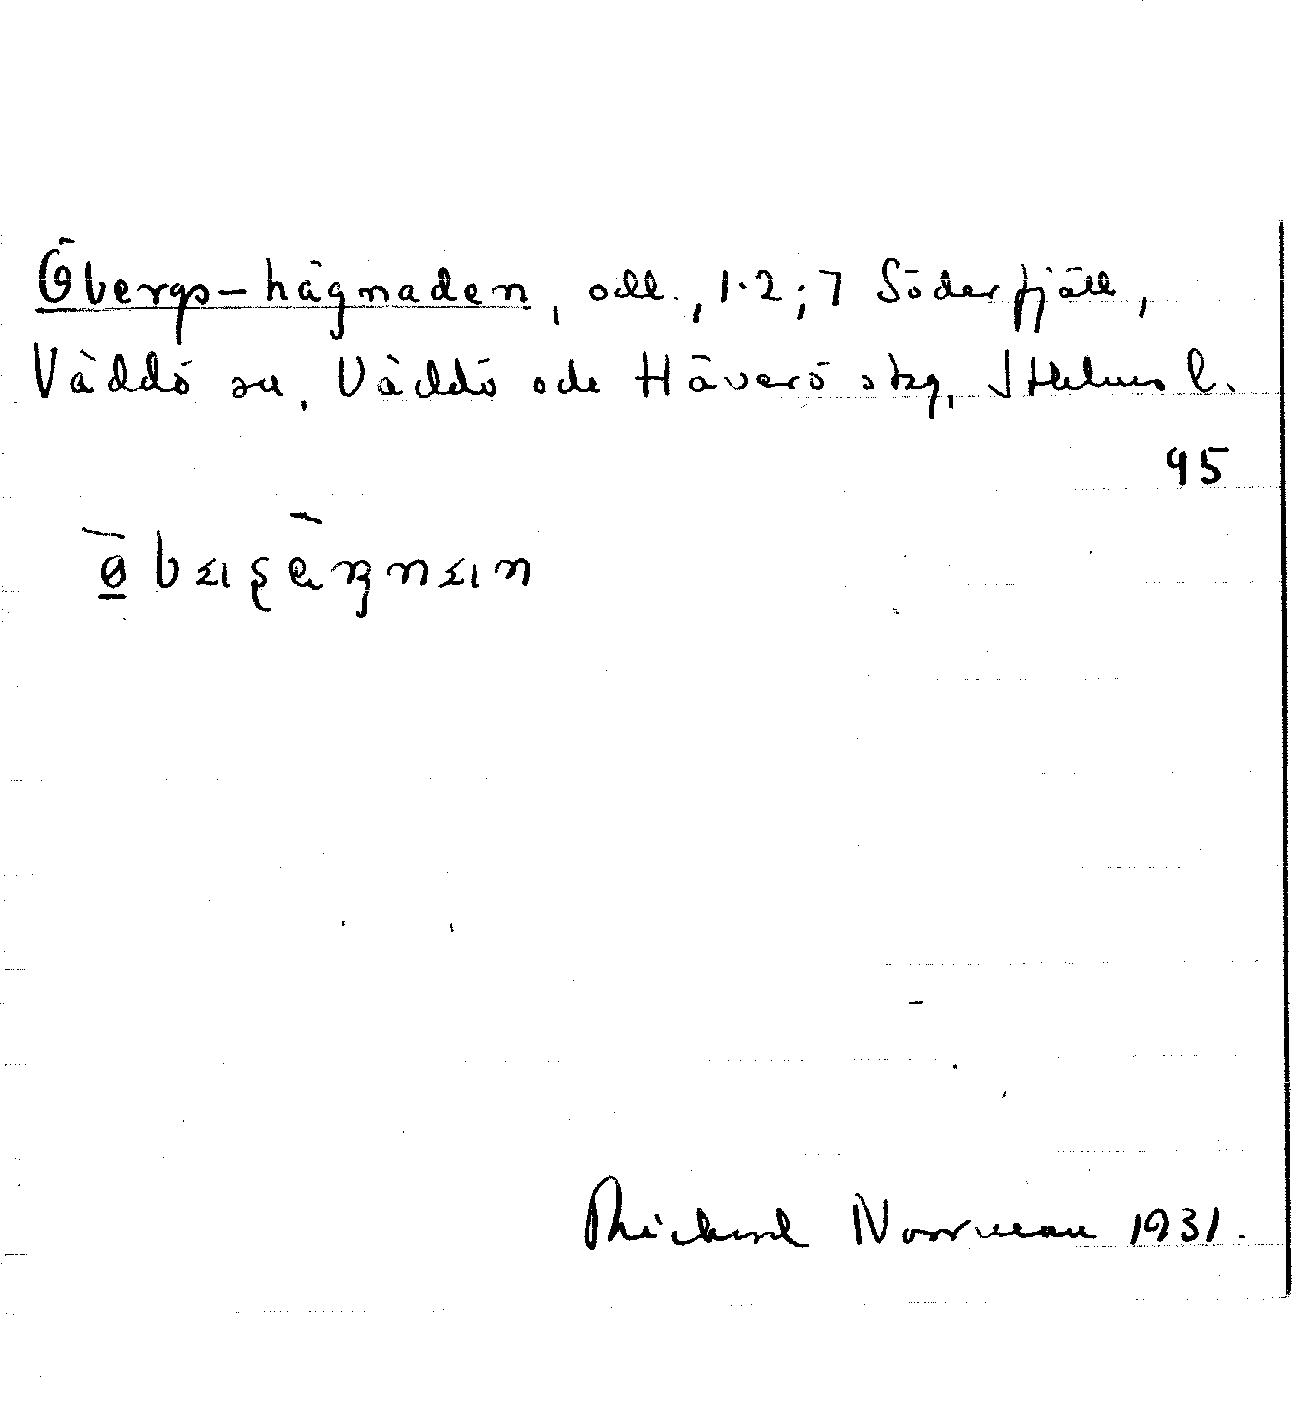 Öbergs-hägnaden, odl., 1.2; 7 Söderfjäll,
Väddö sn, Väddö och Häverö skg, Sthlms l.
95
Rickard Norrman 1931.